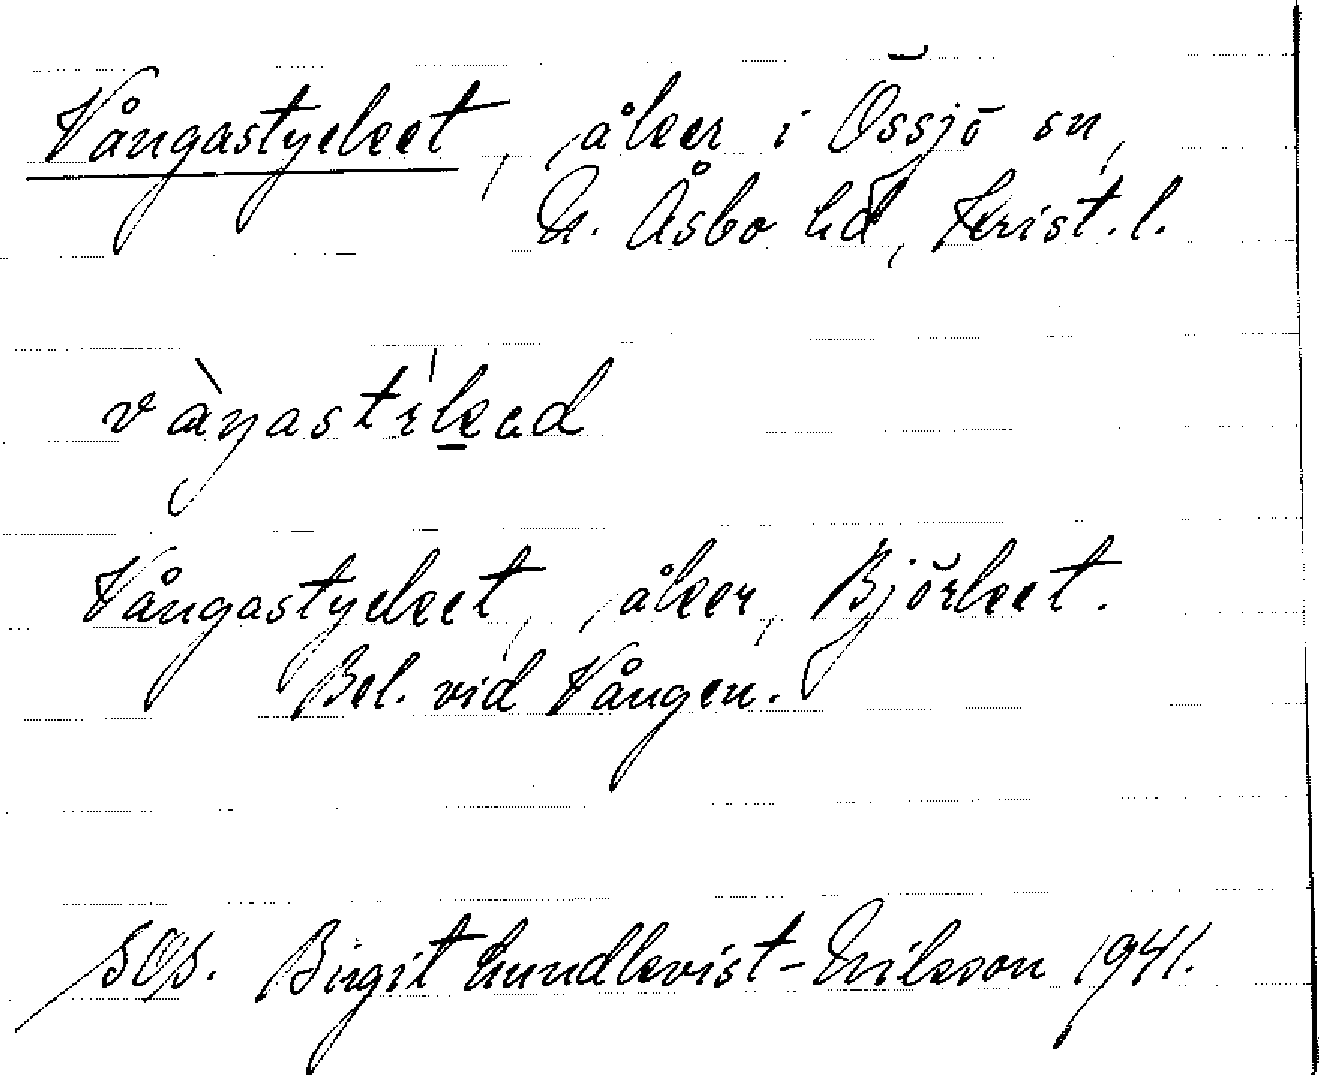 Vångastycket, åker i Össjö sn,
N. Åsbo hd, Krist. l.
Vångastycket, åker, Björket.
Bel. vid Vången.
Birgit Lundkvist-Eriksson 1941.